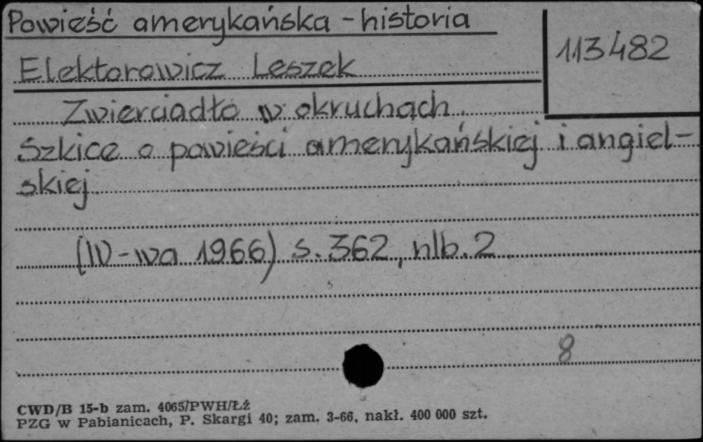 Powieść amerykańska - historia
113482
Elektorowicz Leszek
Zwierciadło w okruchach.
Szkice o powieści amerykańskiej i angiel-
skiej
(W-wa 1966) s. 362, nlb. 2
8
CWD/B 15-b zam. 4065/PWH/Łż
PZG w Pabianicach, P. Skargi 40; zam. 3-66, nakł. 400 000 szt.